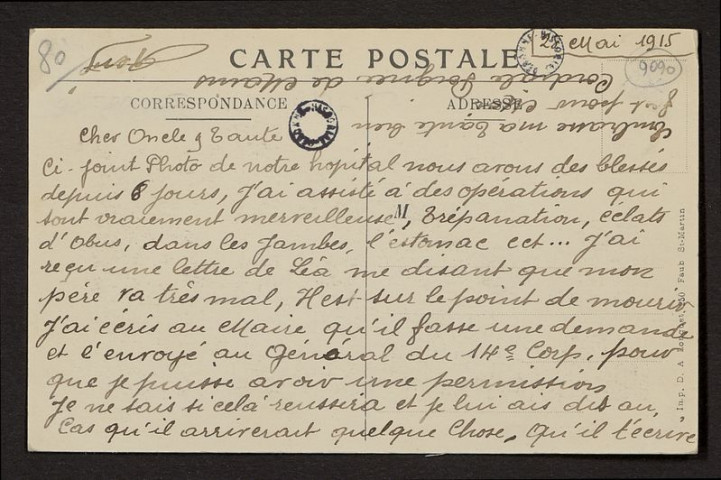 80
25 Mai 1915
9090
CARTE POSTALE
CORRESPONDANCE
ADRESSE
Cher Oncle & Tante
Ci-joint Photo de notre hopital nous avons des blessés
depuis 6 jours, j'ai assisté à des operations qui
sont vraiement merveilleuse, Trépanation, éclats
M
d'Obus, dans les Jambes, l'estomac ect... J'ai
reçu une lettre de Léa me disant que mon
père va très mal, Il est sur le point de mourir
J'ai écris au Maire qu'il fasse une demande
et l'envoyé au Général du 14e Corp, pour
que je puisse avoir une permission
Je ne sais si celà reussira et je lui ais dit au,
Cas qu'il arriverait quelque Chose, qu'il t'écrive
Embrasse ma tante bien
fort pour
Cordiale Poignée de Mains
Imp. D. A. Longuet, 250 Faub St-Martin